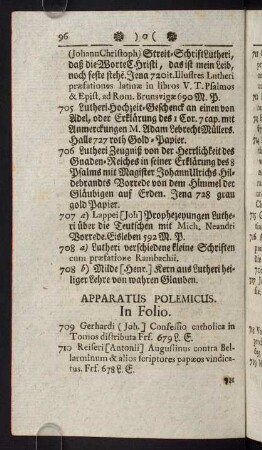 96 )o(
(Johann Christoph) Streit-Schrifft Lutheri,
daß die Worte Christi, das ist mein Leib,
noch feste stehē. Jena 720 it. Illustres Lutheri
præfationes latinæ in libros V. T. Psalmos
& Epist. ad Rom. Brunsvigæ 690 M. P.
705 Lutheri-Hochzeit-Geschenck an einen von
Adel, oder Erklärung des 1 Cor. 7 cap. mit
Anmerckungen M. Adam Lebrecht Müllers.
Halle 727 roth Gold-Papier.
706 Lutheri Zeugniß von der Herrlichkeit des
Gnaden-Reiches in seiner Erklärung des 8
Psalms mit Magister Johann Ulrichs Hil-
debrandes Vorrede von dem Himmel der
Gläubigen auf Erden. Jena 728 grau
gold Papier.
707 a) Lappei [Joh] Prophezeyungen Luthe-
ri über die Teutschen mit Mich. Neandri
Vorrede. Eisleben 592 M. P.
708 a) Lutheri verschiedene kleine Schriften
cum præfatione Rambachii.
708 b) Milde [Henr.] Kern aus Lutheri hei-
liger Lehre von wahren Glauben.
APPARATUS POLEMICUS.
In Folio.
709 Gerhardi (Joh.) Confessio catholica in
Tomos distributa Frf. 679 L. E.
710 Reiseri [Antonii] Augustinus contra Bel-
larminum & alios scriptores papæos vindica-
tus. Frf. 678 L. E.